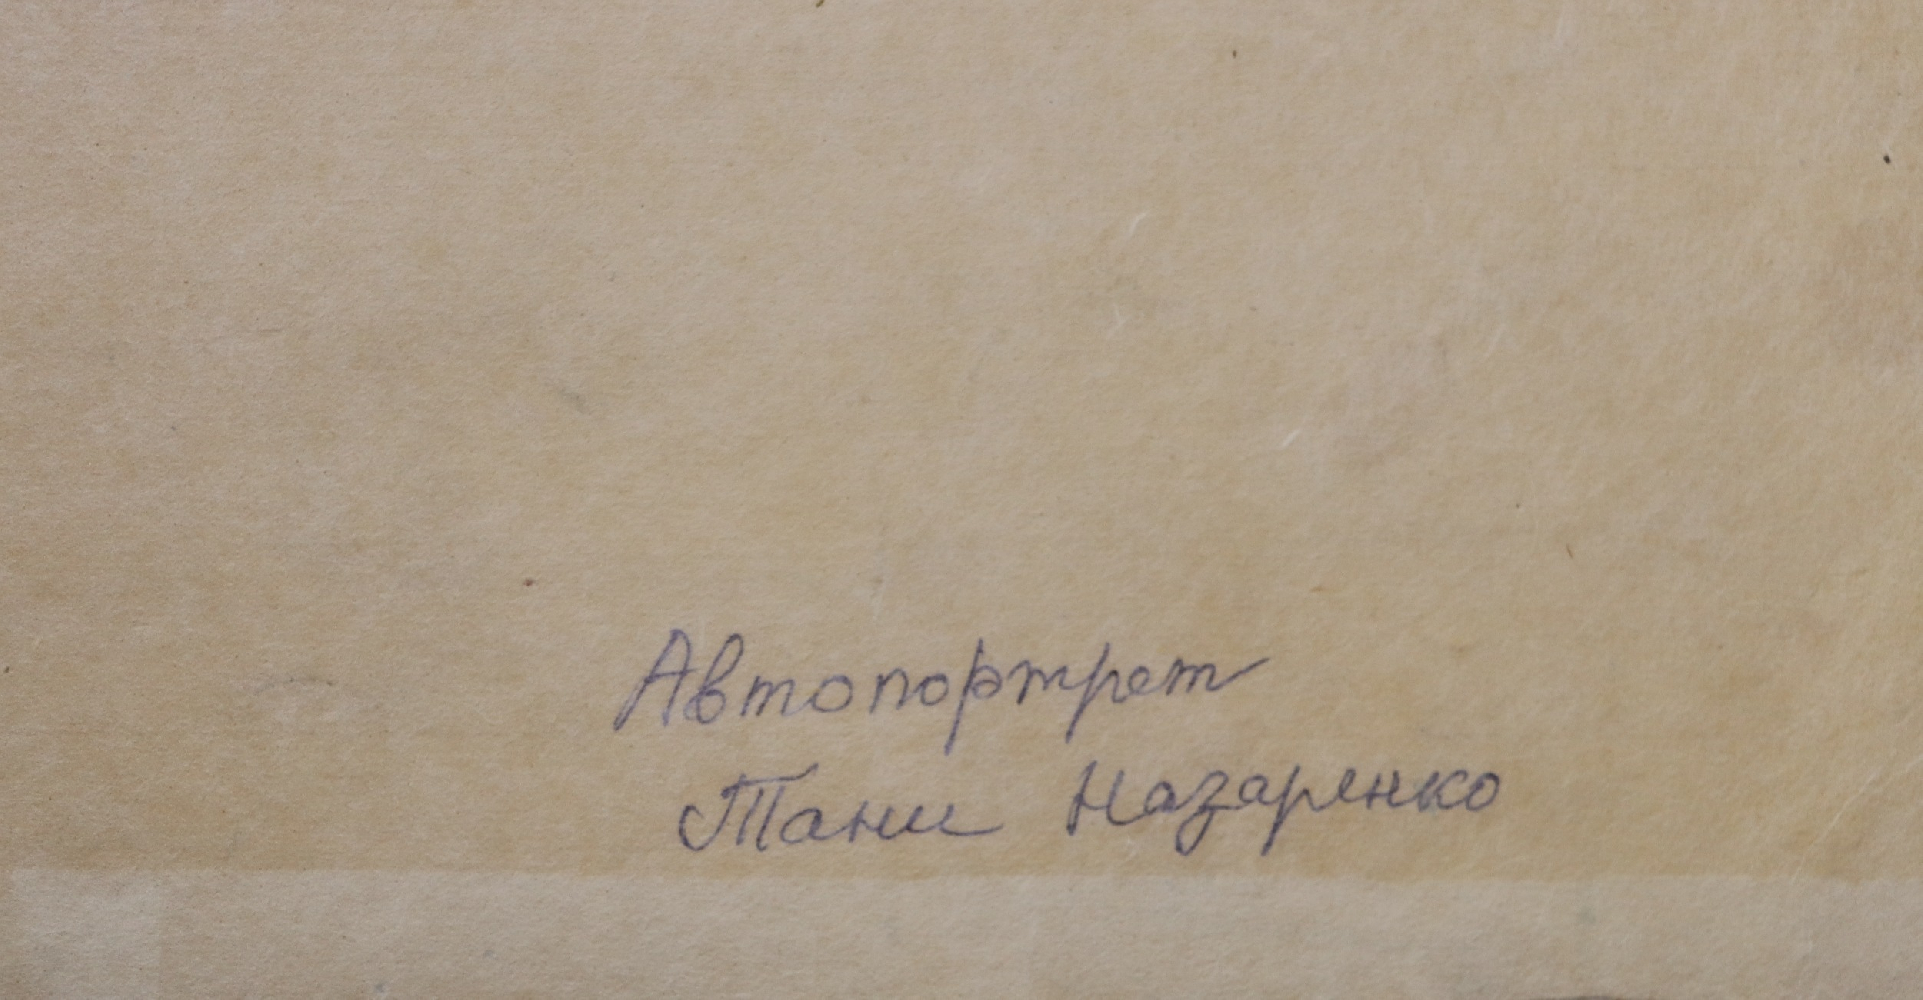 Автопортрет
Тани Назаренко